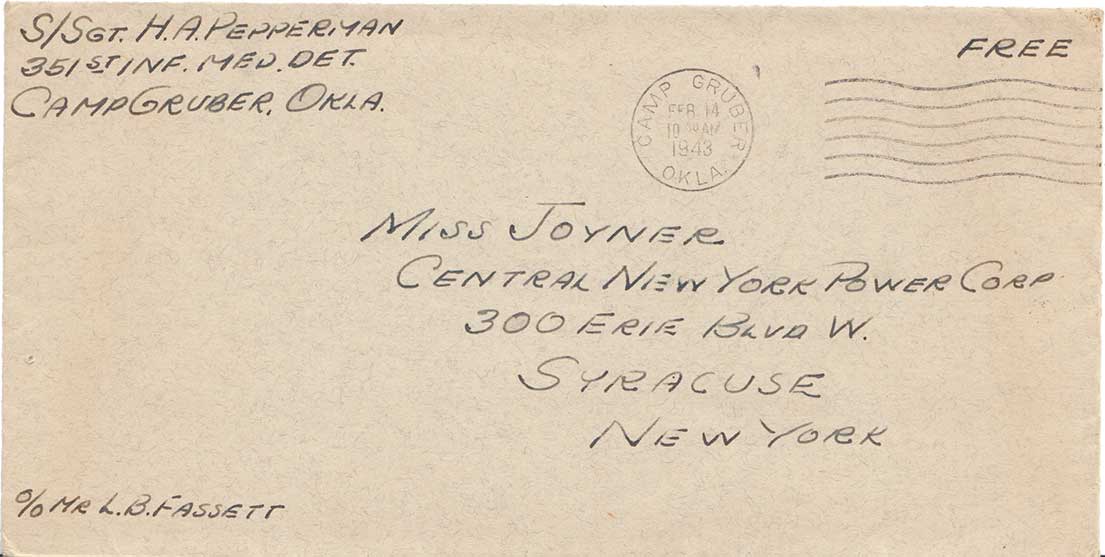 S/SGT. H.A. PEPPERMAN
351ST INF. MED. DET.
CAMP GRUBER, OKLA.
FREE
CAMP GRUBER
FEB 14
10 AM
1943
OKLA.
MISS JOYNER
CENTRAL NEW YORK POWER CORP
300 ERIE BLVD W.
SYRACUSE
NEW YORK
c/o MR L.B. FASSETT